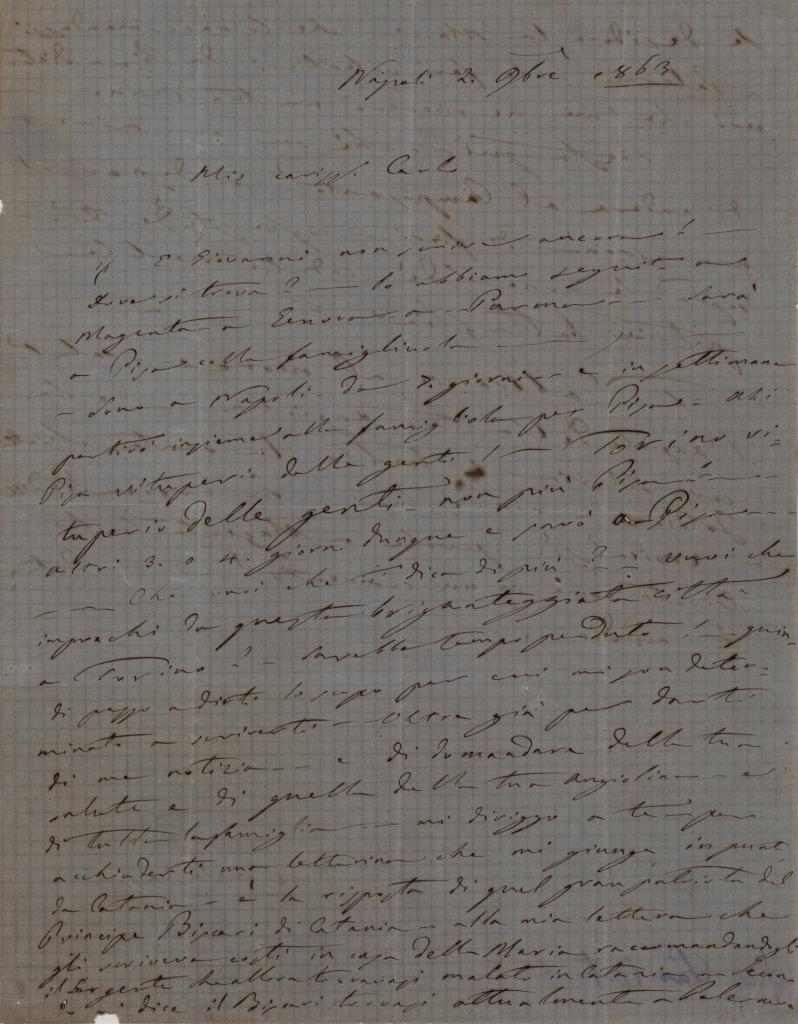 Napoli 2. 9bre 1863
Mio cariss. Carlo
E Giovanni non scrive ancora! —
Dove si trova? — lo abbiamo seguito a
Magenta — a Genova — a Parma — Sarà
a Pisa colla famigliuola —
— Sono a Napoli da 7. giorni — e in settimana
partirò insieme alla famigliola per Pisa — Ahi
Pisa vituperio delle genti! — Torino vi-
tuperio delle genti — non più Pisa —
altri 3. o 4. giorni dunque e sarò a Pisa —
— Che vuoi che ti dica di più? — vuoi che
imprechi da questa briganteggiata città
a Torino? — Sarebbe tempo perduto! — quin-
di passo a dirti lo scopo per cui mi son deter-
minato a scriverti — oltre già per darti
di me notizia — e di domandare della tua
salute e di quella della tua Angiolina — e
di tutta la famiglia — mi diriggo a te per
acchiuderti una letterina che mi giunge
da Catania — è la risposta di quel gran patriota del
Principe Biscari di Catania — alla mia lettera che
gli scriveva costì in casa della Maria raccomandandogli
il Sargente che allora trovavasi malato in Catania — Secon
mi dice il Biscari trovasi attualmente a Palermo